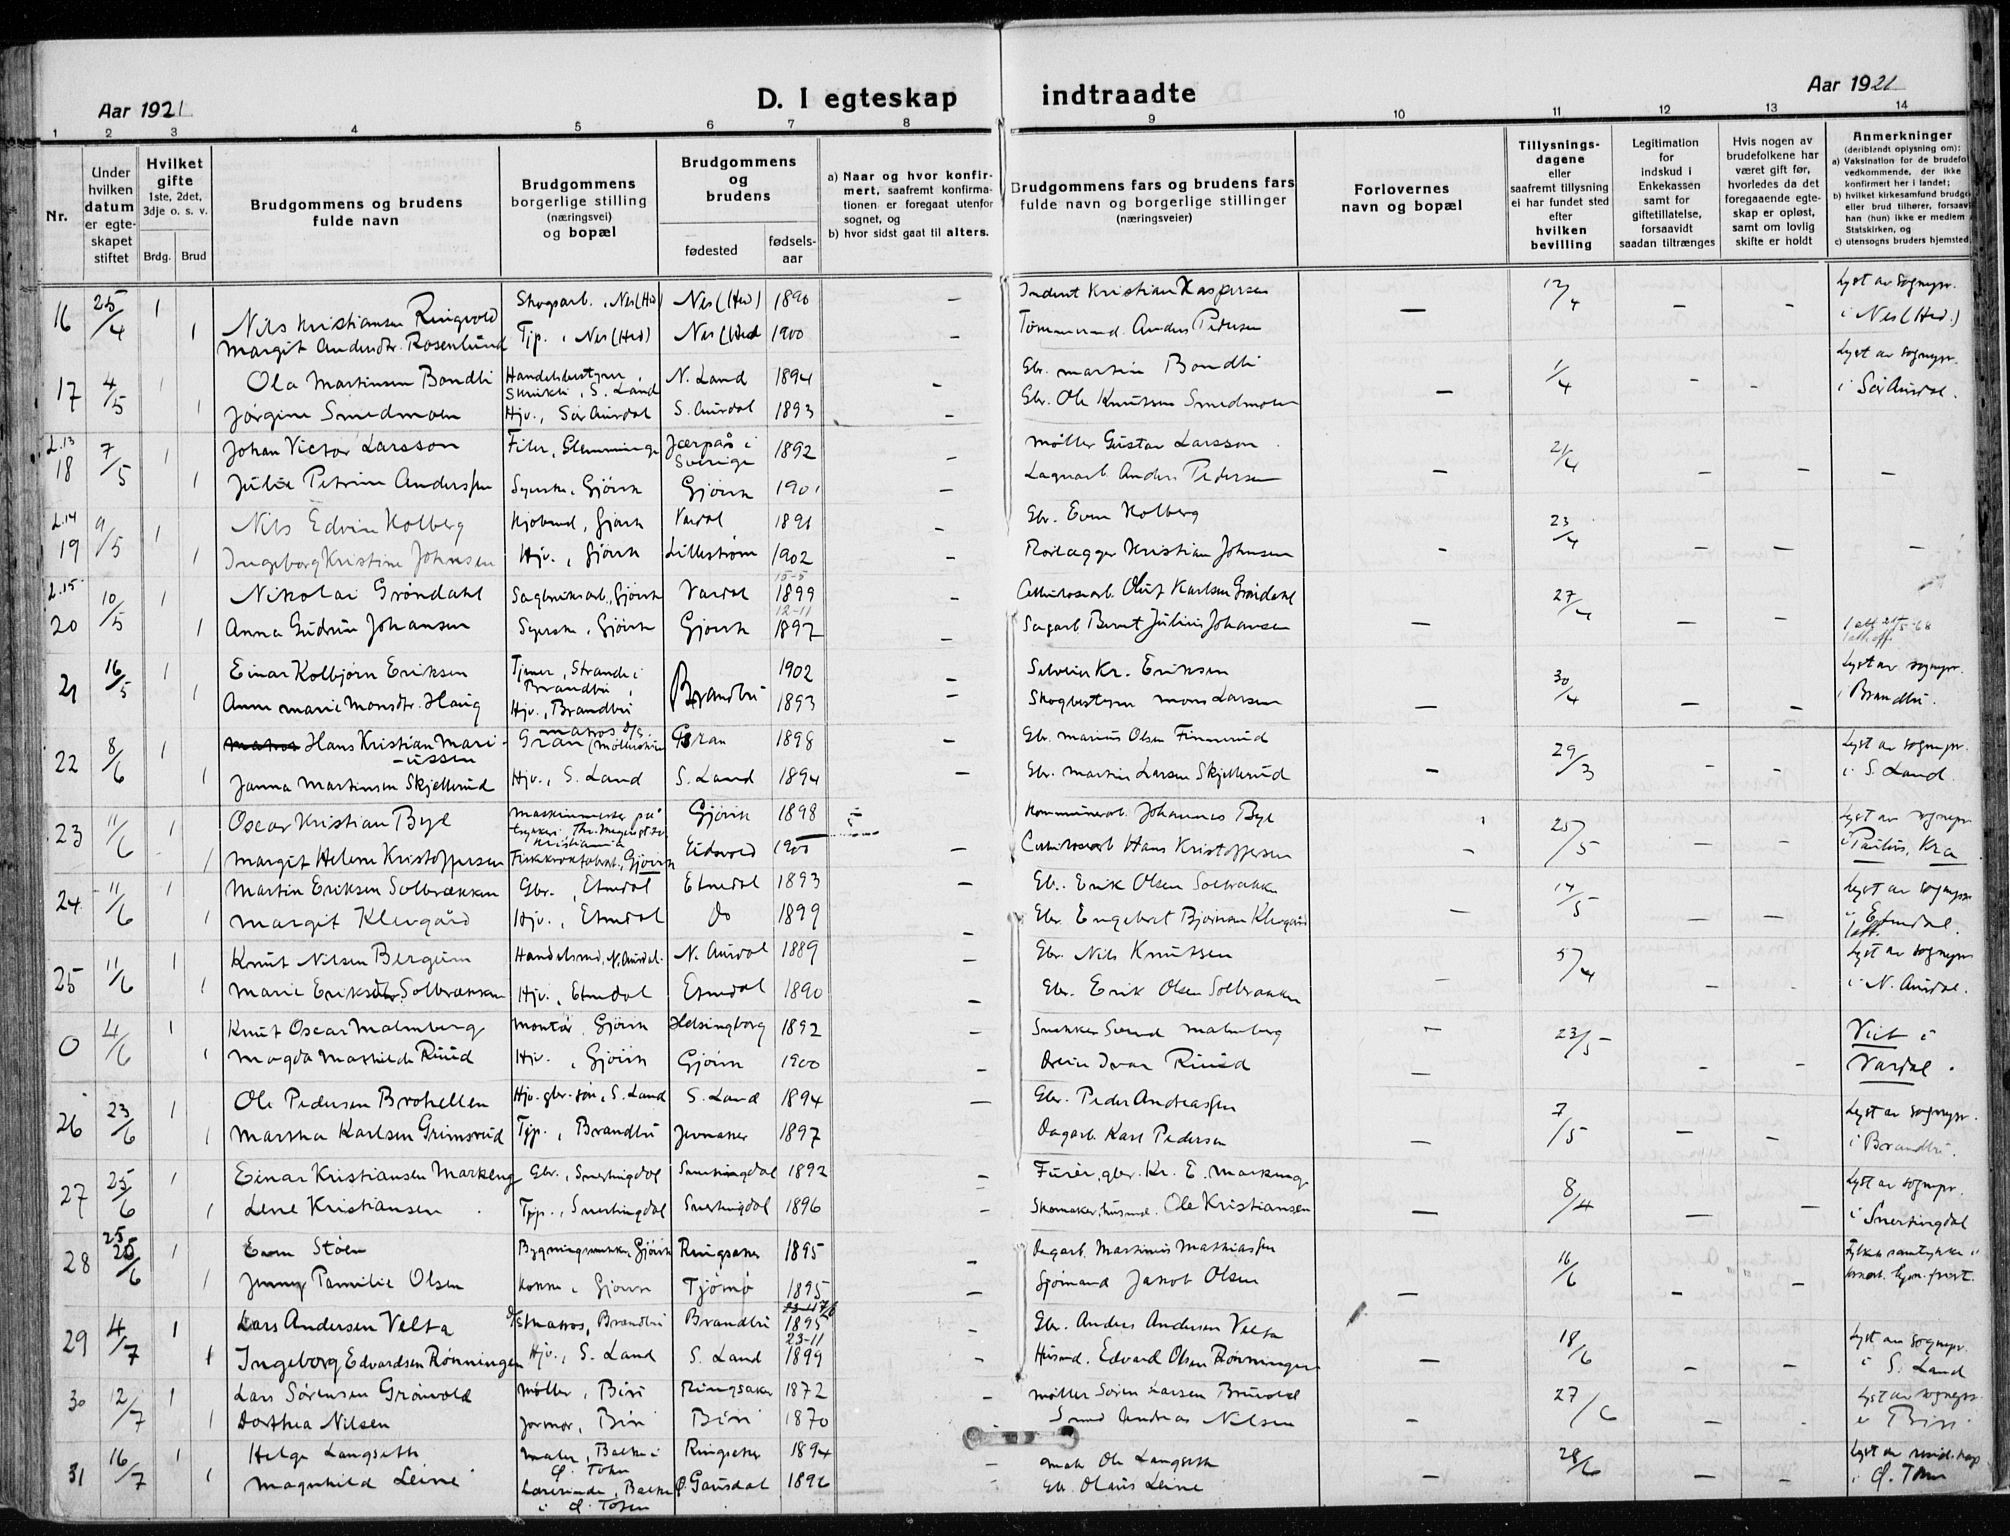 Aar 1921
D. I egteskap indtraadte
Aar 1921
1 2 3 4 5 6 7 8 9 10 11 12 13 14
Nr.
Under hvilken datum er egteskapet stiftet
Hvilket gifte 1ste, 2det, 3dje o. s. v.
Brdg. Brud
Brudgommens og brudens fulde navn
Brudgommens borgerlige stilling (næringsvei) og bopæl
Brudgommens og brudens
fødested
fødsels-aar
a) Naar og hvor konfirmert, saafremt konfirmationen er foregaat utenfor sognet, og
b) hvor sidst gaat til alters.
Brudgommens fars og brudens fars fulde navn og borgerlige stillinger (næringsveier)
Forlovernes navn og bopæl
Tillysningsdagene eller saafremt tillysning ei har fundet sted efter hvilken bevilling
Legitimation for indskud i Enkekassen samt for giftetillatelse, forsaavidt saadan tiltrænges
Hvis nogen av brudefolkene har været gift før, hvorledes da det foregaaende egteskap er opløst, samt om lovlig skifte er holdt
Anmerkninger (deriblandt oplysning om):
a) Vaksination for de brudefol vedkommende, der ikke konfirmert her i landet;
b) hvilket kirkesamfund brudgo eller brud tilhører, forsaavi han (hun) ikke er medlem Statskirken, og
c) utensogns bruders hjemsted.
16 25/4 1 Nils Kristiansen Ringvold Skogsarb., Nes (Hed) Nes (Hed) 1890 – Kristian Kaspersen – 12/4 – – Lyst av sognepr.
1 Margit Andersdtr. Rosenlund Tjp., Nes (Hed) Nes (Hed 1900 – Tømmermand. Anders Pedersen i Nes (Hed.)
17 4/5 1 Ola Martinsen Bondli Handelsbestyrer, Skrukli, S. Land N. Land 1894 – Gbr. Martin Bondli – 1/4 – – Lyst av sognepr.
1 Jørgine Smedmoen Hjv., Sør Aurdal S. Aurdal 1893 – Gbr. Ole Knutsen Smedmoen i Sør Aurdal.
L.13 18 7/5 1 Johan Victor Larsson Filer, Glemminge Jærpås i Sverige 1892 Møller Gustav Larsson – 21/4 – – –
1 Julie Petrine Anderssen Syerske, Gjøvik Gjøvik 1901 – Lagerarb. Anders Pedersen
L.14 19 9/5 1 Nils Edvin Holberg Kjøbmd, Gjøvik Vardal 1891 – Gbr. Even Holberg – 23/4 – – –
1 Ingeborg Kristine Johnsen Hjv., Gjøvik Lillestrøm 1902 – Rørlægger Kristian Johnsen
L.15 20 10/5 1 Nikolai Grøndahl Sagbruksarb., Gjøvik Vardal 15-5 1899 – Cellulosearb. Oluf Karlsen Grøndahl – 27/4 – –
1 Anna Gudrun Johansen Syerske, Gjøvik Gjøvik 12-11 1897 – Sagarb. Bernt Julius Johansen 1 att
21 16/5 1 Einar Kolbjørn Eriksen Tjener, Strande i Brandbu, Brandbu 1902 – Kr. Eriksen – 30/4 – – Lyst av sognepr.
1 Anne Marie Monsdtr. Haug Hjv., Brandbu 1893 – Skogbestyrer Mons Larsen i Brandbu.
22 8/6 1 Hans Kristian Mariussen Matros d/s. Gran Gran 1898 Gbr. Marius Olsen Finnerud – 29/3 – – Lyst av sognepr.
1 Janna Martinsen Skjellerud Hjv., S. Land S. Land 1894 – Gbr. Martin Larsen Skjellerud i S. Land.
23 11/6 1 Oscar Kristian Bye Maskinmester på trykkeri, Kristiania Gjøvik 1898 Kommunearb. Johannes Bye – 25/5 – – Lyst av sognepr
1 Margit Helene Kristoffersen Gjøvik Eidsvold 1900 – Cellulosearb. Hans Kristoffersen i Paulus, Kra
24 11/6 1 Martin Eriksen Solbrækken Gbr., Etnedal Etnedal 1893 – Gbr. Erik Olsen Solbrække – 14/5 – – Lyst av sognepr
1 Margit Klevgård Hjv., Etnedal Do 1899 – Gbr. Engebret Bjørnsen Klevgård i Etnedal.
1 att.
25 11/6 1 Knut Nilsen Bergum Handelsmd, N. Aurdal. N. Aurdal 1889 – Gbr. Nils Knutsen – 5/4 – – Lyst av sognepr
1 Marie Eriksdtr. Solbrækken Hjv., Etnedal Etnedal 1890 – Gbr. Erik Olsen Solbrækken i N. Aurdal.
0 4/6 1 Knut Oscar Malmberg Montør, Gjøvik Helsingborg 1892 Snekker Svend Malmberg – 23/5 – Viet i
1 Magda Mathilde Ruud Hjv., Gjøvik Gjøvik 1900 – Ivar Ruud – Vardal.
26 23/6 1 Ole Pedersen Brohellen Hjv. gbr. søn, S. Land S. Land 1894 – Gbr. Peder Andreassen – 7/5 – – Lyst av sognepr.
1 Martha Karlsen Grimsrud Tjp., Brandbu Jevnaker 1897 Dagarb. Karl Pedersen i Brandbu.
27 25/6 1 Einar Kristiansen Markeng Gbr., Snertingdal Snertingdal 1892 – Furér, gbr. Kr. E. Markeng – 8/4 – – Lyst av sognepr.
1 Lene Kristiansen Tjp., Snertingdal Snertingdal 1896 – Skomaker, husmd. Ole Kristiansen i Snertingdal
28 25/6 1 Even Støen Bygningssnekker Gjøvik Ringsaker 1895 – Dagarb. Martinus Mathiassen – 16/6 – –
1 Jenny Pamilie Olsen Kokke, Gjøvik Tjømø 1895 – Sjømand Jakob Olsen
29 4/7 1 Lars Andersen Velta Matros, Brandbu Brandbu 1895 – Gbr. Anders Andersen Velta – 18/6 – – Lyst av sognepr.
1 Ingeborg Edvardsen Rønningen Hjv., S. Land S. Land 23-11 1899 – Husmd. Edvard Olsen Rønningen i S. Land
30 12/7 1 Lars Sørensen Grønvold Møller, Biri Ringsaker 1872 – Møller Søren Larsen – 27/6 – – Lyst av sognepr.
1 Dorthea Nilsen Jormor, Biri Biri 1870 Smed Andreas Nilsen i Biri
31 16/7 1 Helge Langseth Maler, Balke i Ø. Toten Ringsaker 1894 – Ole Langseth – 28/6 – –
1 Magnhild Leine Lærerinde, Balke i Ø. Toten Ø. Gausdal 1896 – Gbr. Olaus Leine i Ø. Toten